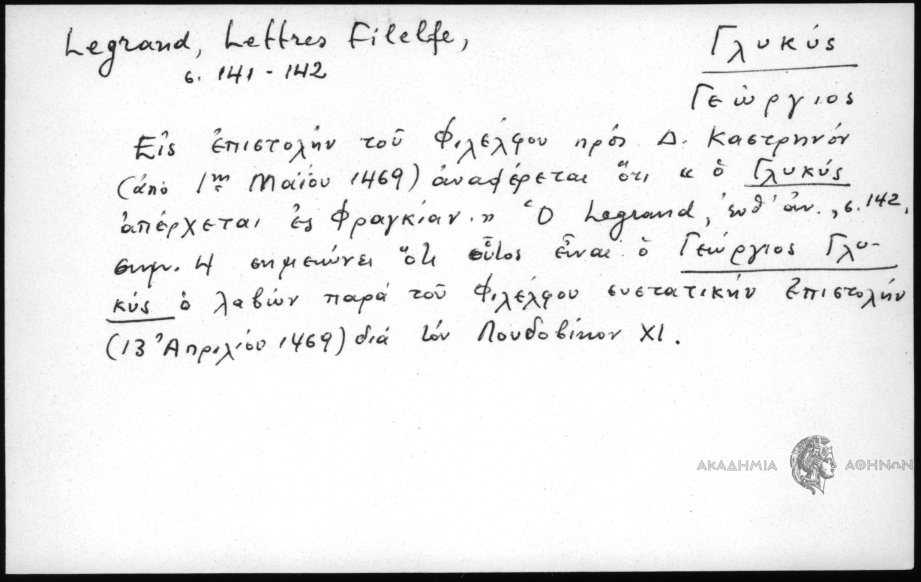 Legrand, Lettres Filelfe,
σ. 141 - 142
Γλυκύς
Γεώργιος
Εἰς ἐπιστολήν τοῦ Φιλέλφου πρός Δ. Καστρηνόν
(ἀπό 1ης Μαΐου 1469) ἀναφέρεται ὅτι « ὁ Γλυκύς
ἀπέρχεται ἐς Φραγκίαν.» Ὁ Legrand, ἔνθ' ἀν., σ. 142,
σημ. 4 σημειώνει ὅτι οὗτος εἶναι ὁ Γεώργιος Γλυ-
κύς ὁ λαβών παρά τοῦ Φιλέλφου συστατικήν ἐπιστολήν
(13 Ἀπριλίου 1469) διά τόν Λουδοβίκον XI.
ΑΚΑΔΗΜΙΑ ΑΘΗΝΩΝ